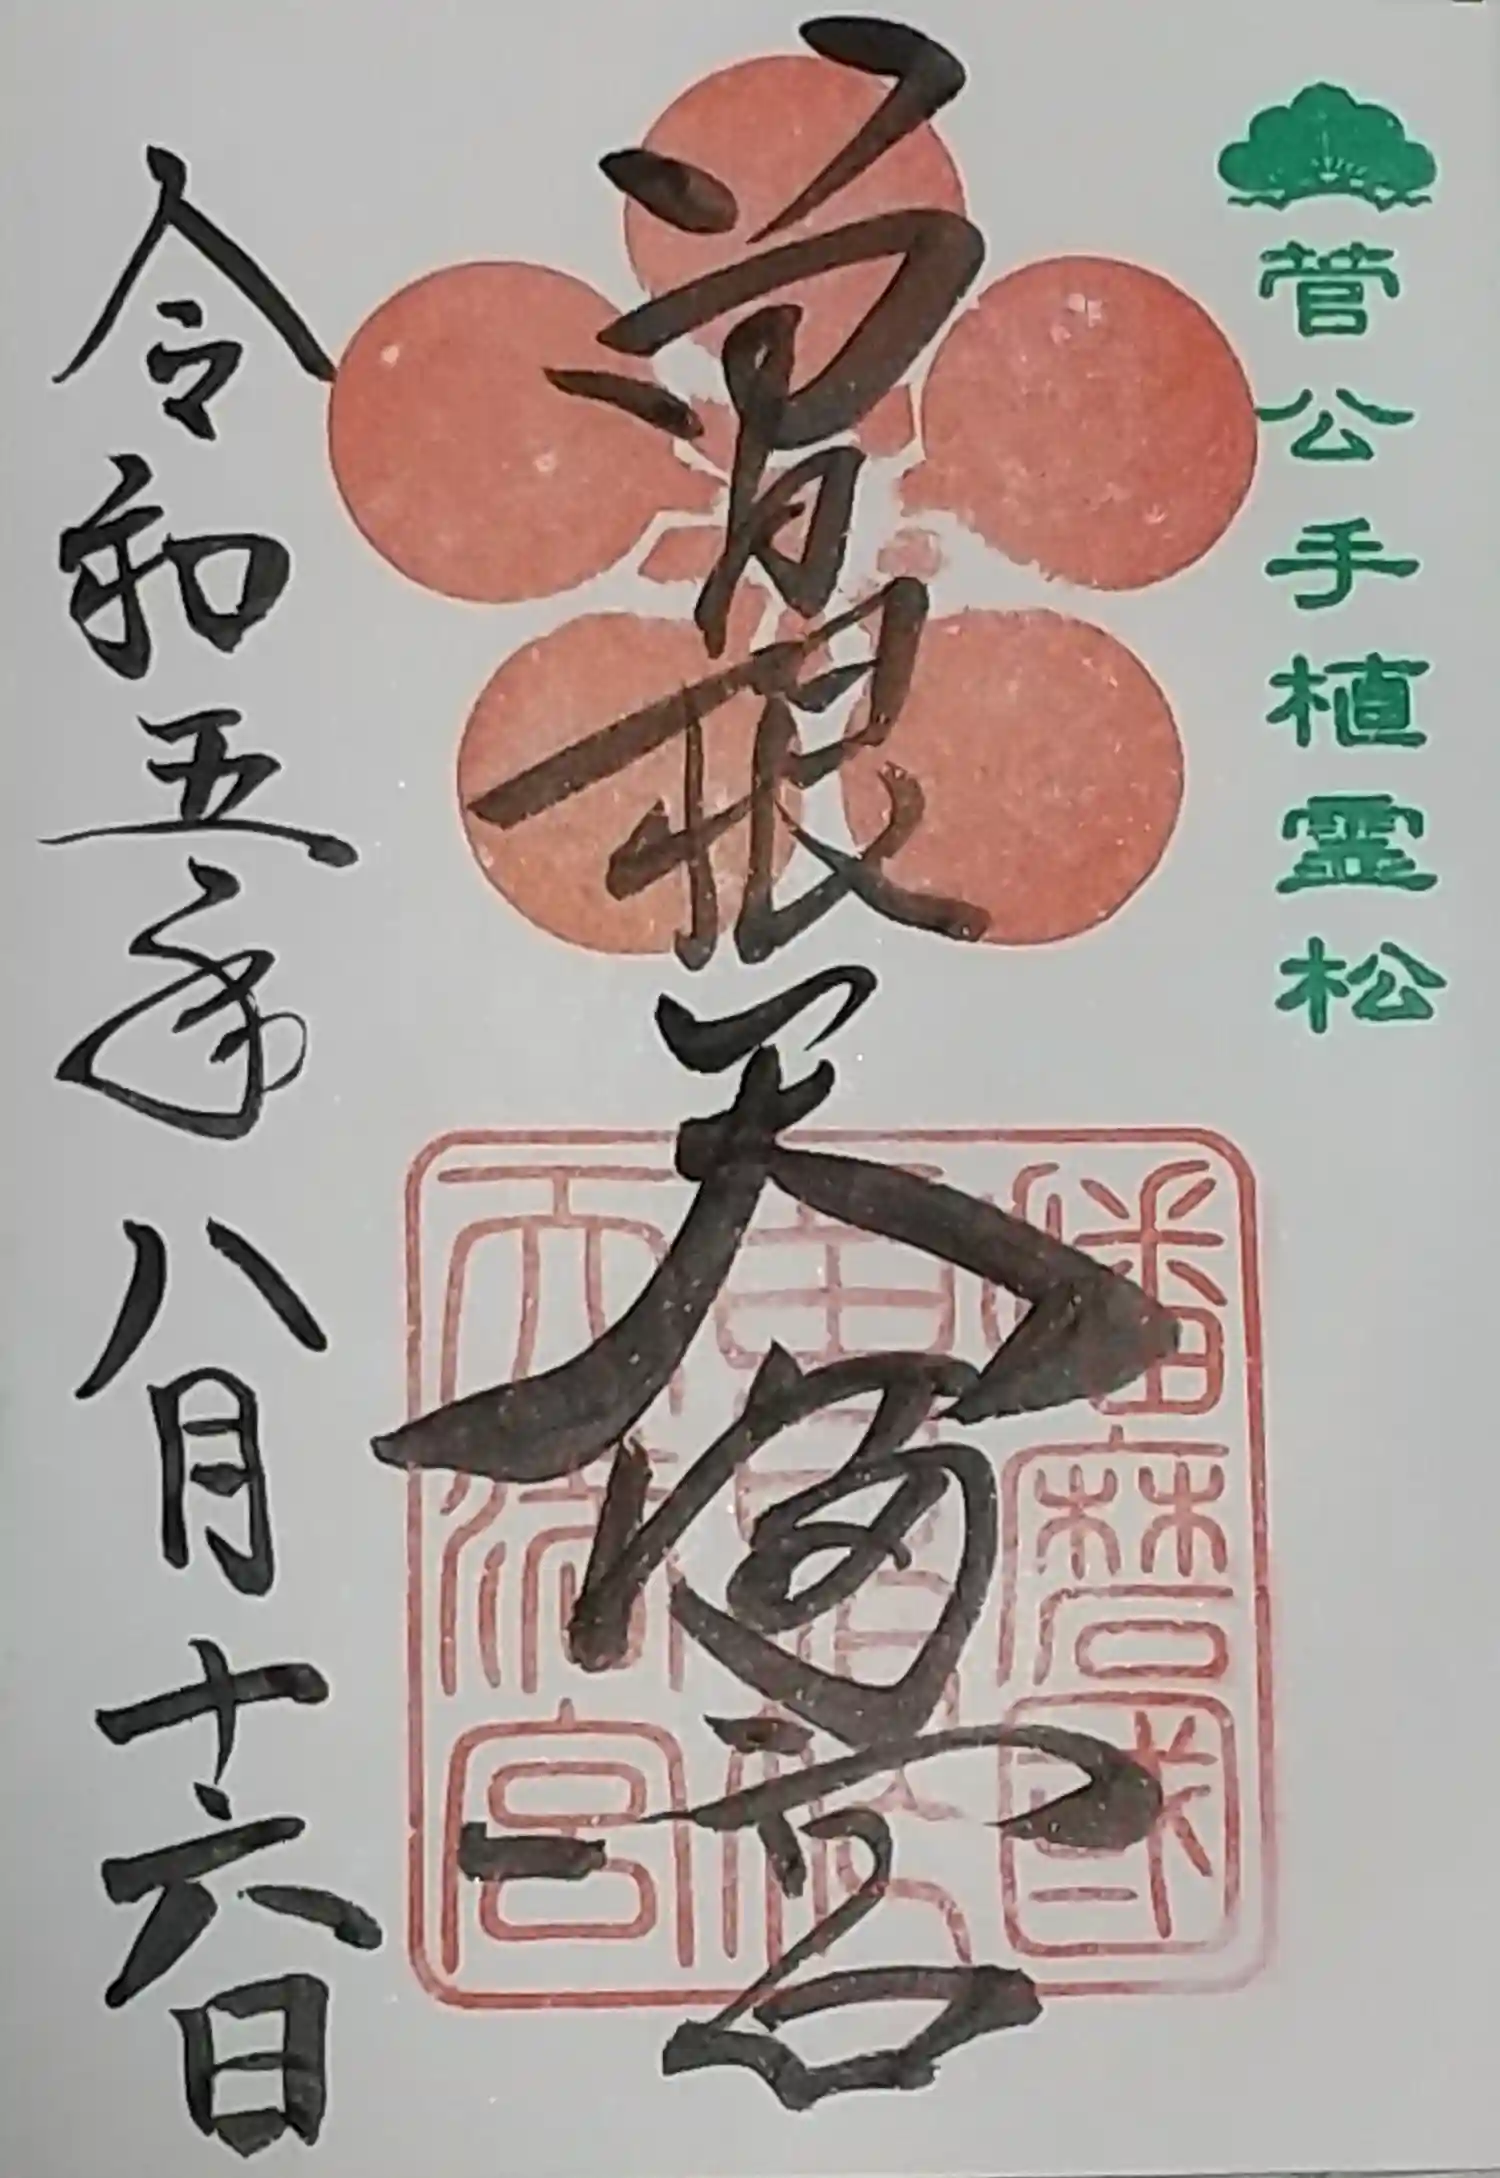 菅公手植霊松
曽根天満宮
播磨国
曽根松
天満宮
令和五年八月十六日